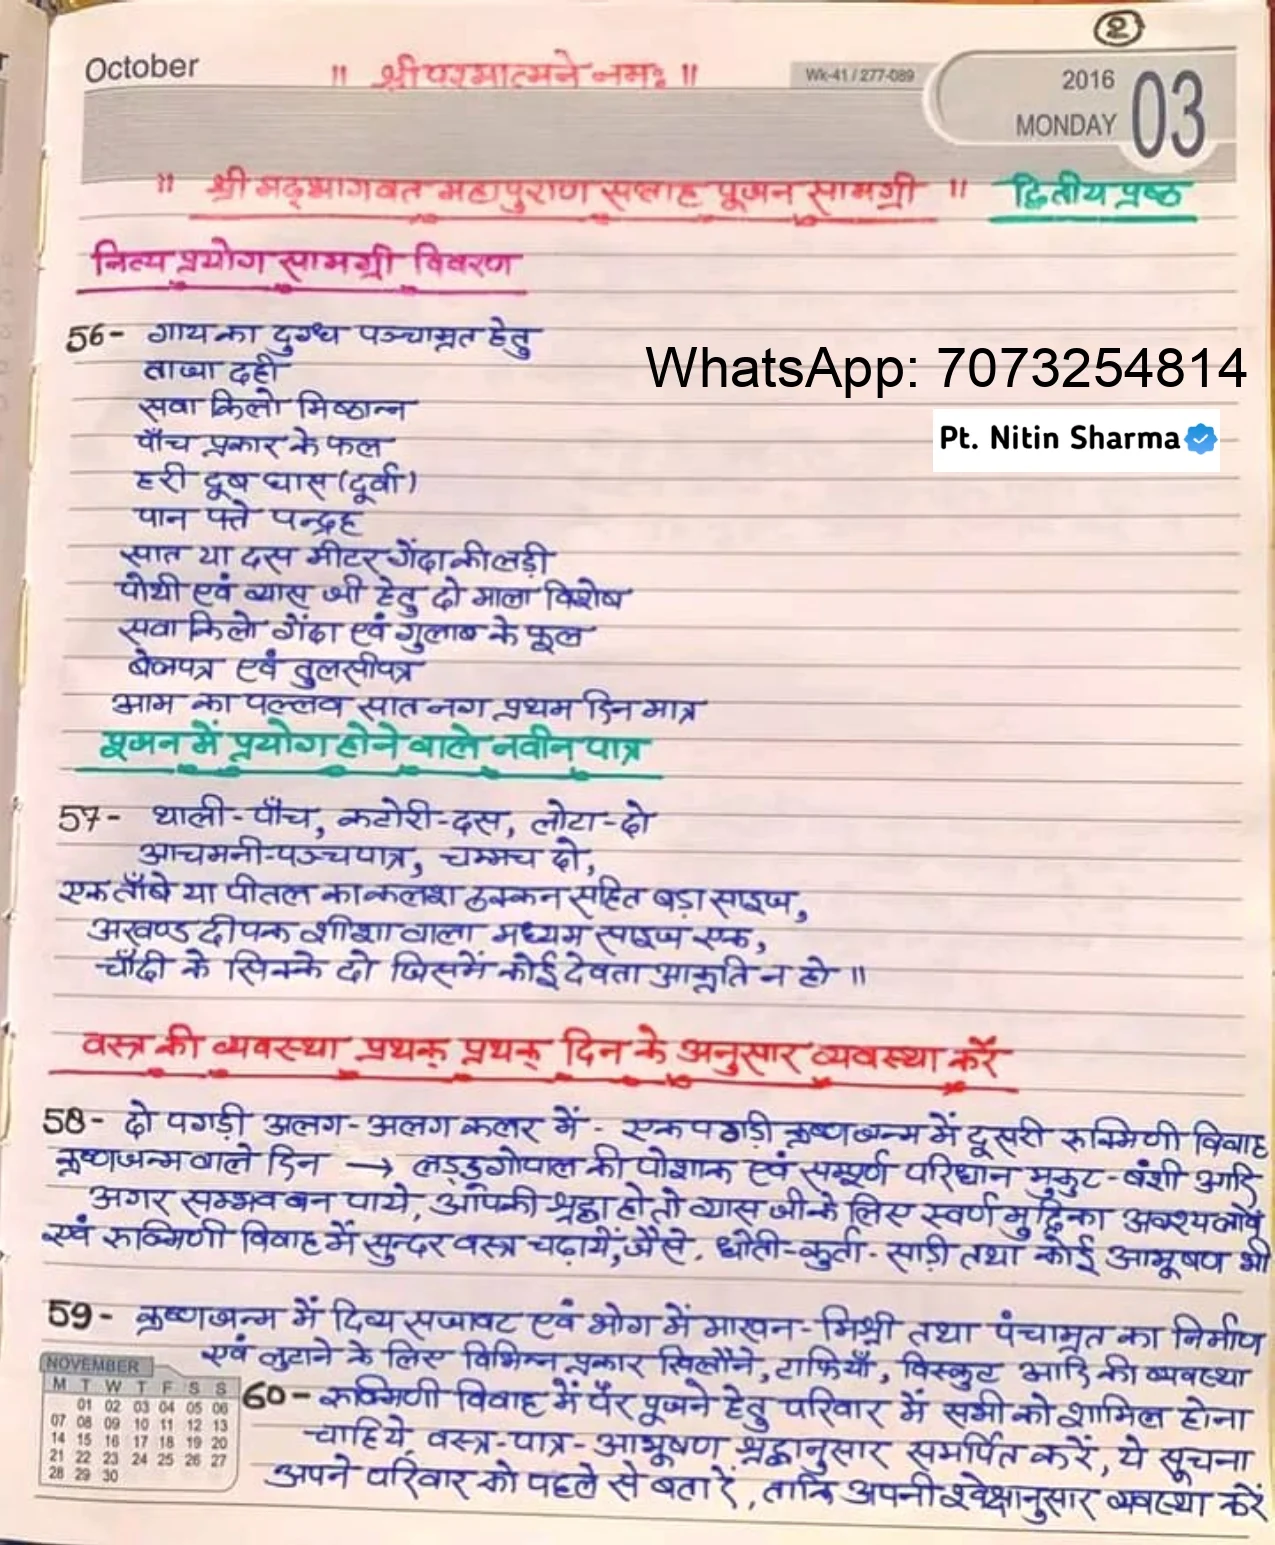 2
October
॥ श्री परमात्मने नमः ॥
Wk-41 / 277-089
2016
MONDAY
03
॥ श्री मद्भागवत महापुराण सप्ताह पूजन सामग्री ॥ द्वितीय प्रष्ठ
नित्य प्रयोग सामग्री विवरण
56- गाय का दुग्ध पञ्चामृत हेतु
ताजा दही
सवा किलो मिष्ठान्न
पाँच प्रकार के फल
हरी दूब घास (दूर्वा)
पान पत्ते पन्द्रह
सात या दस मीटर गेंदा की लड़ी
पोथी एवं व्यास जी हेतु दो माला विशेष
सवा किलो गेंदा एवं गुलाब के फूल
बेलपत्र एवं तुलसीपत्र
आम का पल्लव सात नग प्रथम दिन मात्र
WhatsApp: 7073254814
Pt. Nitin Sharma
पूजन में प्रयोग होने वाले नवीन पात्र
57- थाली-पाँच, कटोरी-दस, लोटा-दो
आचमनी-पञ्चपात्र, चम्मच दो,
एक ताँबे या पीतल का कलश ढक्कन सहित बड़ा साइज,
अखण्ड दीपक शीशा वाला मध्यम साइज एक,
चाँदी के सिक्के दो जिसमें कोई देवता आकृति न हो ॥
वस्त्र की व्यवस्था प्रथक् प्रथक् दिन के अनुसार व्यवस्था करें
58- दो पगड़ी अलग-अलग कलर में - एक पगड़ी कृष्णजन्म में दूसरी रुक्मिणी विवाह
कृष्णजन्म वाले दिन → लड्डूगोपाल की पोशाक एवं सम्पूर्ण परिधान मुकुट-बंशी आदि
अगर सम्भव बन पाये, आपकी श्रद्धा हो तो व्यास जी के लिए स्वर्ण मुद्रिका अवश्य लावें
एवं रुक्मिणी विवाह में सुन्दर वस्त्र चढ़ायें, जैसे. धोती-कुर्ता-साड़ी तथा कोई आभूषण भी
59- कृष्णजन्म में दिव्य सजावट एवं भोग में माखन-मिश्री तथा पंचामृत का निर्माण
एवं लुटाने के लिए विभिन्न प्रकार खिलौने, टाफियाँ, विस्कुट आदि की व्यवस्था
60- रुक्मिणी विवाह में पैर पूजने हेतु परिवार में सभी को शामिल होना
चाहिये, वस्त्र-पात्र-आभूषण श्रद्धानुसार समर्पित करें, ये सूचना
अपने परिवार को पहले से बता दें, ताकि अपनी स्वेक्षानुसार व्यवस्था करें
NOVEMBER
M T W T F S S
01 02 03 04 05 06
07 08 09 10 11 12 13
14 15 16 17 18 19 20
21 22 23 24 25 26 27
28 29 30